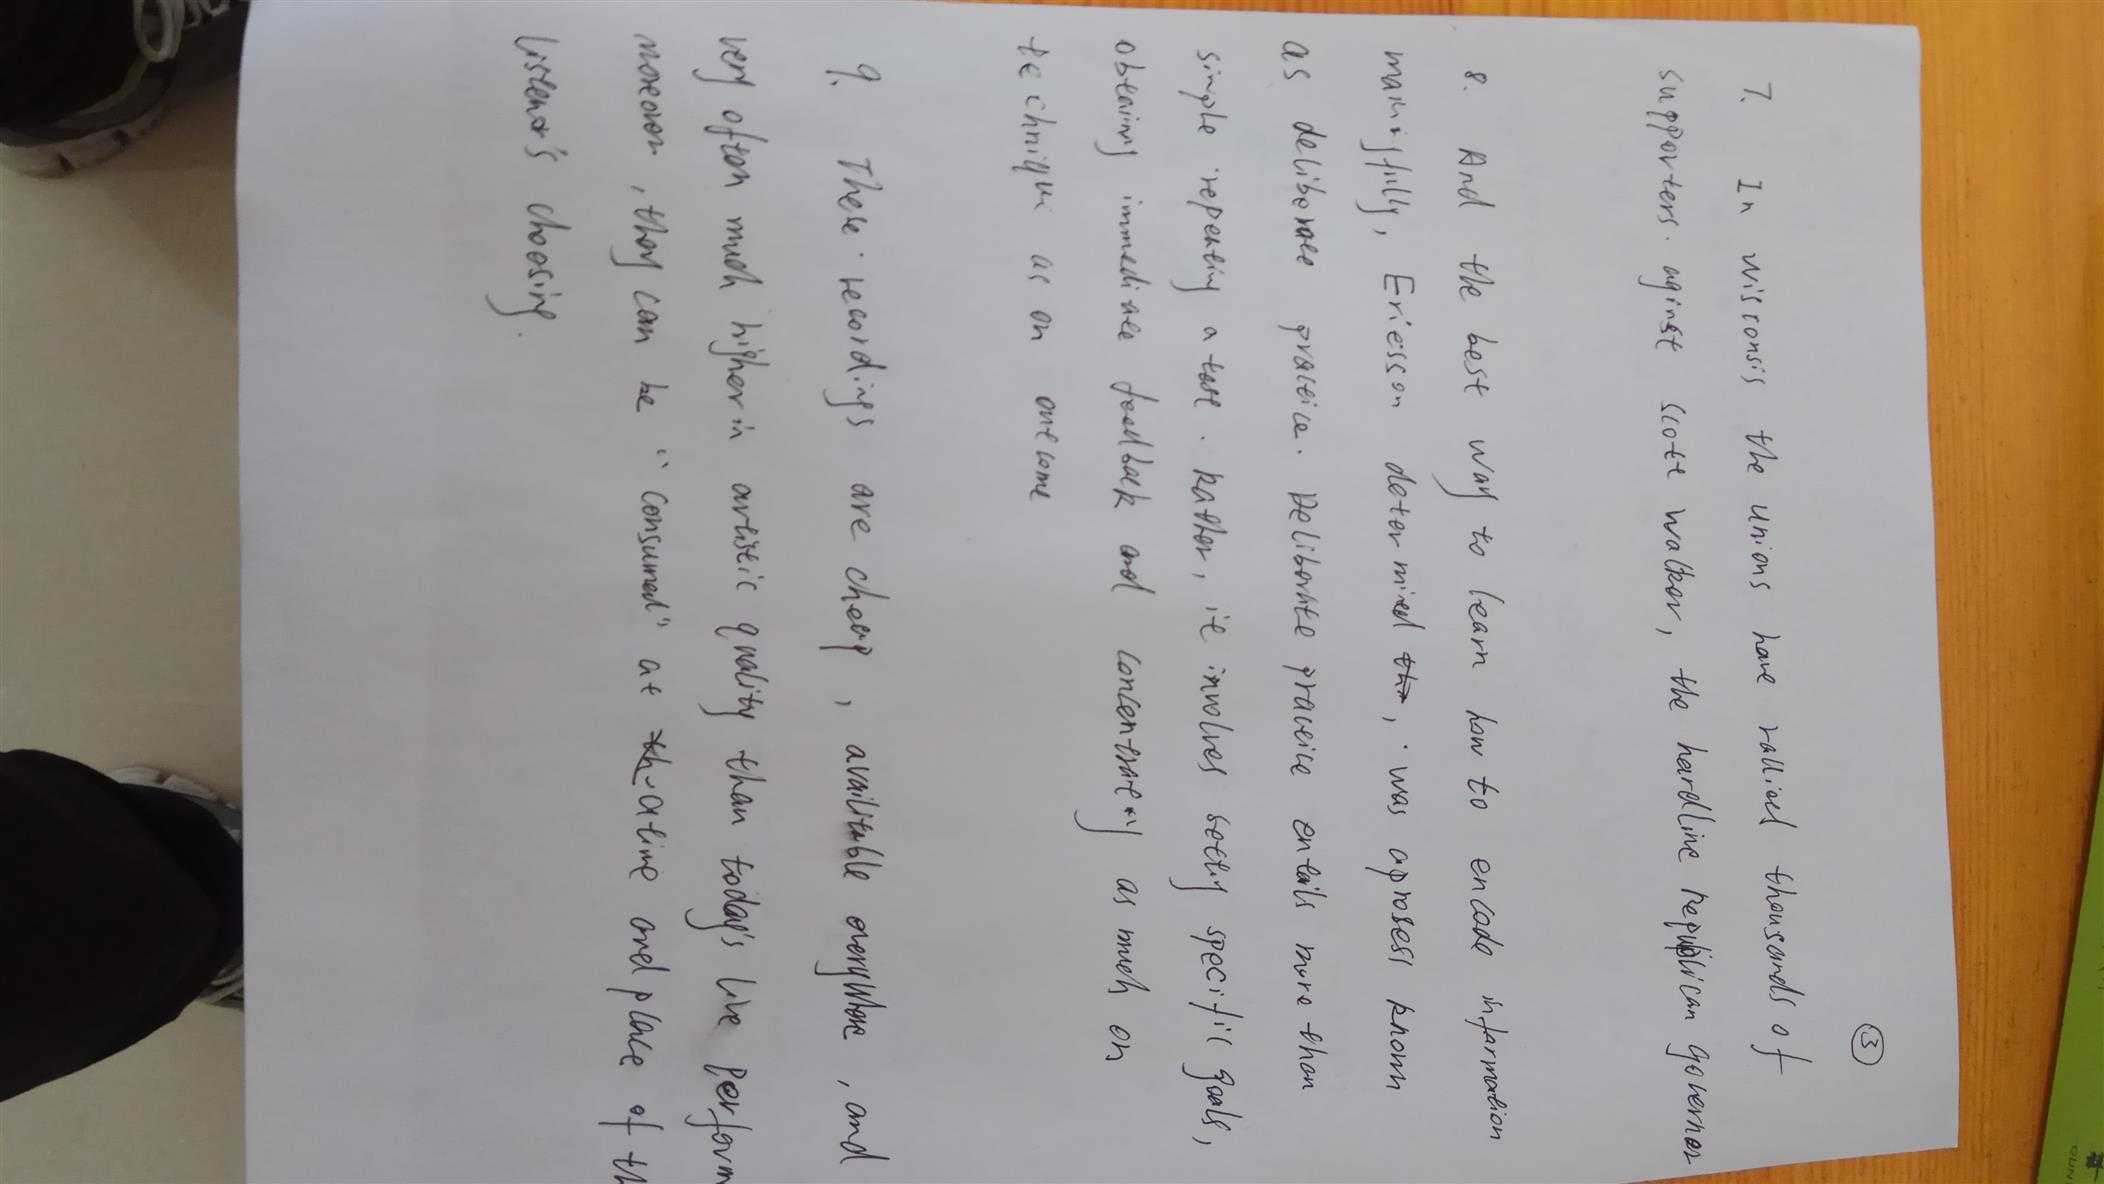 ③
7. In wisconsis the unions have rallied thousands of
supporters. aginst scott walker, the hardline Republican governor
8. And the best way to learn how to encode information
maningfully, Eriesson determined, was aproses known
as deliberate practice. Deliberate practice entails more than
simple repeating a task. Rather, it involves setting specific goals,
obtaining immediate feedback and concentrating as much on
technique as on outcome
9. These recordings are cheap, available everywhere, and
very often much higher in artistic quality than today's live perform
moreover, they can be "consumed" at a time and place of th
listener's choosing.